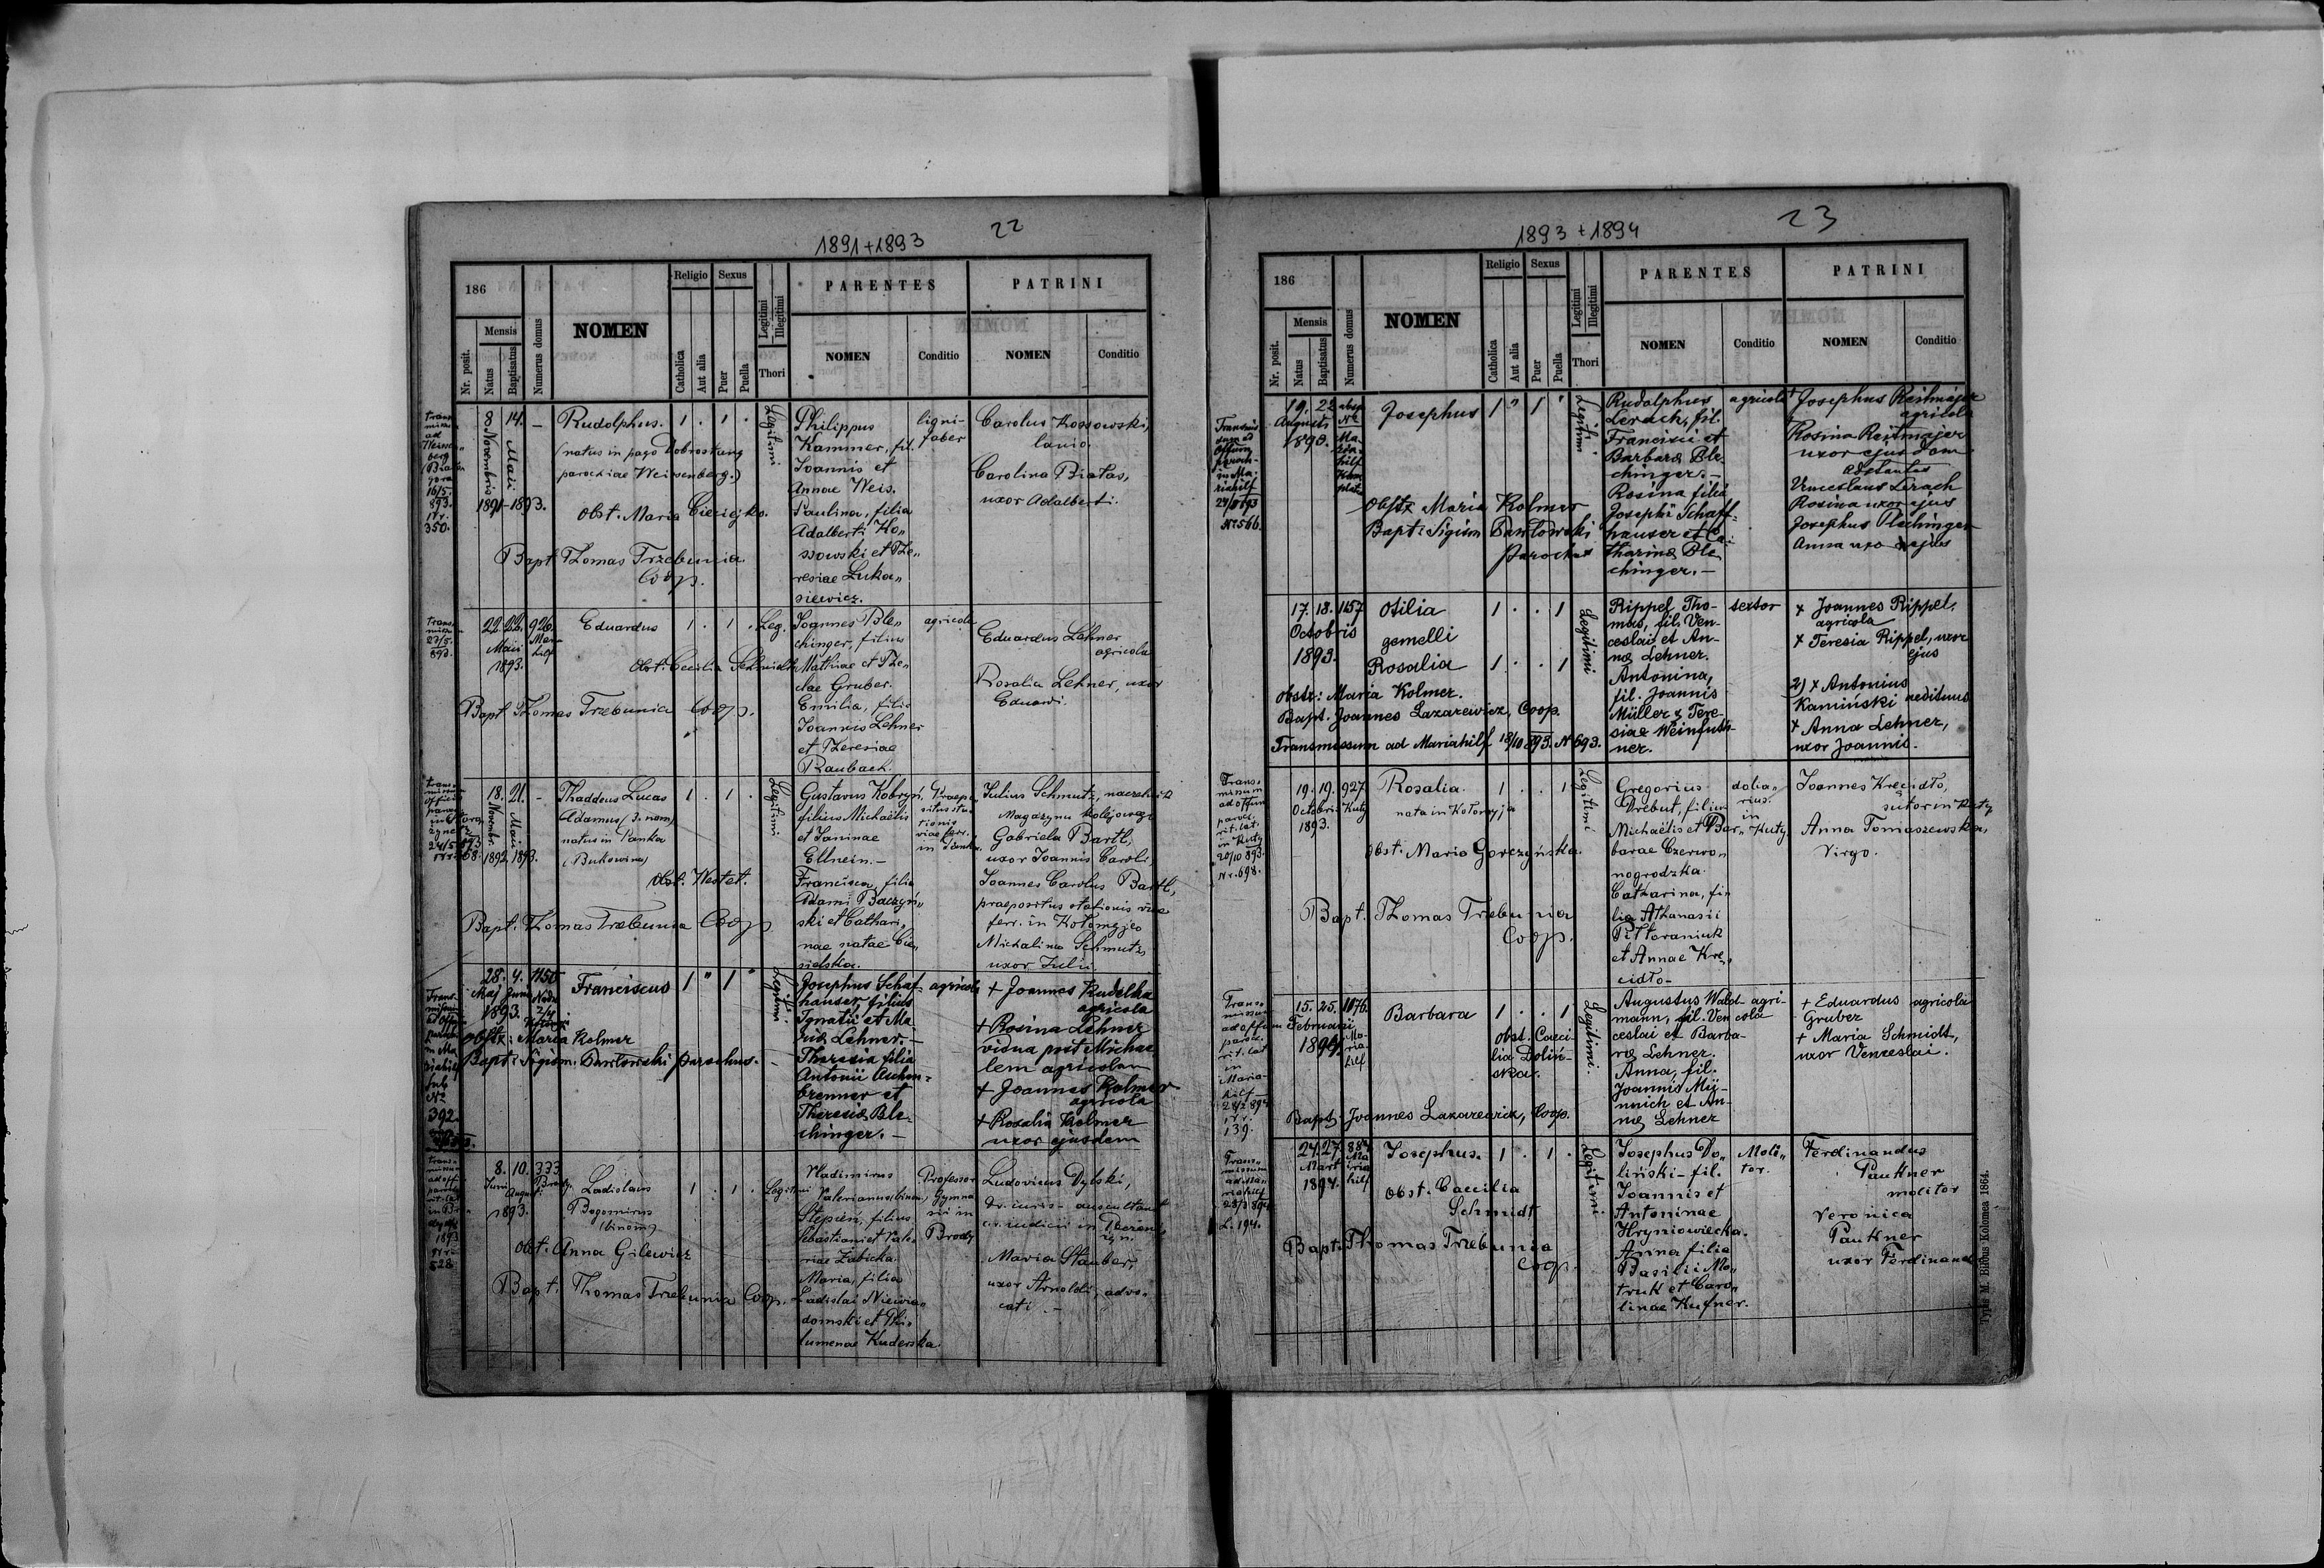 1891+1893
22
186
Nr. posit.
Mensis
Natus
Baptisatus
Numerus domus
NOMEN
Religio
Catholica
Aut alia
Sexus
Puer
Puella
Legitimi
Illegitimi
Thori
PARENTES
NOMEN
Conditio
PATRINI
NOMEN
Conditio
8 14. –
Novembris
Maii
1891–1893.
350.
Rudolphus. 1 . 1 .
(natus in pago Dobrostany
parochiae Weissenberg.)
Obst. Maria
Bapt. Thomas Trzebunia
Coop.
Legitimi
Philippus
Kammer, fil.
Joannis et
Annae Weis.
Paulina, filia
Adalberti Ko„
ssowski et The„
resiae Luka„
siewicz.
ligni-
faber
Carolus Kossowski,
lanio.
Carolina Białas,
uxor Adalberti.
22. 22. 926.
Maii
1893.
Eduardus 1 . 1 . Leg.
Obst. Cecilia Schmidt
Bapt. Thomas Trzebunia Coop.
Joannes Ble„
chinger, filius
Mathiae et The„
clae Gruber.
Emilia, filia
Joannis Lehner
et Theresiae
Raubach.
agricola
Eduardus Lehner
agricola
Rosalia Lehner, uxor
Eduardi.
18. 21. –
Novembr.
Maii
1892. 1893.
Thaddeus Lucas 1 . 1 .
Adamus (3. nom)
natus in Panka
(Bukowina)
Obst. Westet.
Bapt. Thomas Trzebunia Coop
Legitimi
Gustavus Kobryń,
filius Michaëlis
et Janinae
Ellnein.–
Francisca, filia
Adami Baczyń„
ski et Cathari„
nae natae Cie„
sielska.
Praepo„
situs sta„
tionis
viae ferr.
in Panka.
Julius Schmutz, naczelnik
Magazynu kolejowego
Gabriela Bartl,
uxor Joannis Caroli,
Joannes Carolus Bartl,
praepositus stationis viae
ferr. in Kołomyjeo
Michalina Schmutz,
uxor Julii.
28. 4. 1150
Maj Junii
1893.
Franciscus 1 " 1 "
Obstz: Maria Kolmer
Bapt: Sigism. Pawłowski parochus.
392.
Legitimi
Josephus Schaf-
hauser filius
Ignatii et Ma-
riæ Lehner.–
Theresia filia
Antonii Aschen-
brenner et
Theresiæ Ble-
chinger.–
agricola
+ Joannes Kudelka
agricola
+ Rosina Lehner
vidua post Michae
lem agricolam
+ Joannes Kolmer
agricola
+ Rosalia Kolmer
uxor ejusdem
8. 10. 333
Junii August. Brody.
1893.
528
Ladislaus 1 . 1 . Legitimi
Bogomirus
(binom)
Obst. Anna Gilewicz
Bapt. Thomas Trzebunia Coop.
Vladimirus
Valerianus (binom)
Stępień, filius
Sebastiani et Vale„
riae Żabicka.
Maria, filia
Ladislai Niewia„
domski et Phi„
lumenae Kuderska.
Professor
Gymna
sii in
Brody
Ludovicus Dybski,
Dr. iuris- auscultant
c.r. iudicii in
Maria Stauber,
uxor Arnoldi, advo„
cati.–
1893 + 1894
23
186
Nr. posit.
Mensis
Natus
Baptisatus
Numerus domus
NOMEN
Religio
Catholica
Aut alia
Sexus
Puer
Puella
Legitimi
Illegitimi
Thori
PARENTES
NOMEN
Conditio
PATRINI
NOMEN
Conditio
19. 22
Augusti
1893.
Nr. 566.
Josephus 1 " 1 "
Obstz Maria Kolmer
Bapt: Sigism Pawłowski
parochus
Legitimi
Rudolphus
Lerach, fil.
Francisci et
Barbaræ Ble-
chinger.–
Rosina filia
Josephi Schaff-
hauser et Ca-
tharinæ Ble
chinger.–
agricola
+ Josephus Reitmajer
agricola
Rosina Reitmajer
uxor ejusdem
adstantes
Venceslaus Lerach
Rosina uxor ejus
Josephus Plechinger
Anna uxor ejus
17. 18. 1157
Octobris
1893.
Otilia 1 . . 1
gemelli
Rosalia 1 . . 1
obstr: Maria Kolmer.
Bapt. Joannes Lazarewicz, Coop.
Transmissum ad Mariahilf 18/10 893. N 693.
Legitimi
Rippel Tho-
mas, fil. Ven-
ceslai et An-
næ Lehner.
Antonina,
fil. Joannis
Müller & Tere-
siae Weinfurt-
ner.
sextor
+ Joannes Rippel,
agricola
+ Teresia Rippel, uxor
ejus
2) + Antonius
Kamiński aedituus
+ Anna Lehner,
uxor Joannis.
Trans„
missum
ad offium
paroch.
rit. lat.
in Kuty
20/10 893.
Nr. 698.
19. 19. 927
Octobris Kuty
1893.
Rosalia. 1 . . 1
nata in Kołomyja
Obst. Maria Gorczyńska.
Bapt. Thomas Trzebunia
Coop.
Legitimi
Gregorius
Drebut, filius
Michaëlis et Bar„
barae Czerwo„
nogrodzka.
Catharina, fi„
lia Athanasii
Pittoraniuk
et Annae Kre„
cidło–
dolia„
rius.
in
Kuty.
Joannes Krecidło,
sutor in Kuty
Anna Tomaszewska,
Virgo.
Trans„
missum
ad offium
paroch.
rit. lat
in
Maria-
hilf
Nr.
139.
15. 25. 1076.
Februarii
1894.
Ma-
ria-
hilf
Barbara 1 . . 1
obst. Caeci-
lia Doliń-
ska.
Bapt. Joannes Lazarewicz, Coop.
Legitimi.
Augustus Wald-
mann, fil. Ven
ceslai et Barba-
ræ Lehner.
Anna, fil.
Joannis Mü-
nnich et An-
næ Lehner
agri-
cola
+ Eduardus agricola
Gruber
+ Maria Schmidt,
uxor Venceslai.
Trans„
missum
L. 194.
24. 27. 887
Mart Ma
ria
hilf
1894.
Josephus. 1 . 1 .
Obst. Caecilia
Schmidt
Bapt. Thomas Trzebunia
Coop.
Legitimi
Josephus Do„
liński– fil.
Joannis et
Antoninae
Hryniowiecka.
Anna filia
Basilii Mo„
truk et Caro„
linae Kufner.
Moli„
tor.
Ferdinandus
Pautkner
molitor
Veronica
Pautkner
uxor Ferdinand
Typis M. Bilous Kolomea 1864.